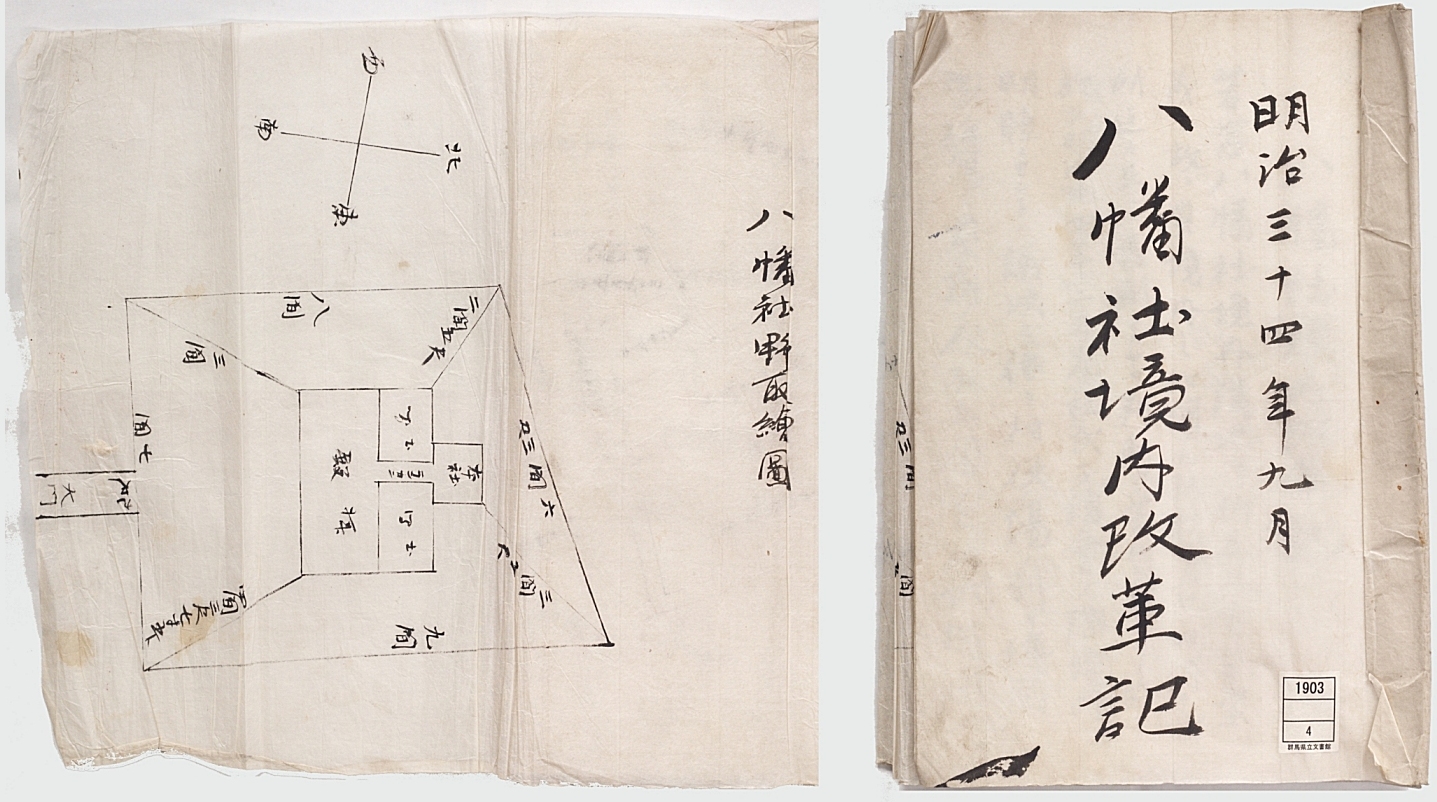 明治三十四年九月
八幡社境内改革記
1903
4
群馬県立文書館
八幡社野取繪圖
西
南
北
東
八間
二間五尺
三間
七間
六間三尺
本社
拝殿
三間
九間
大門